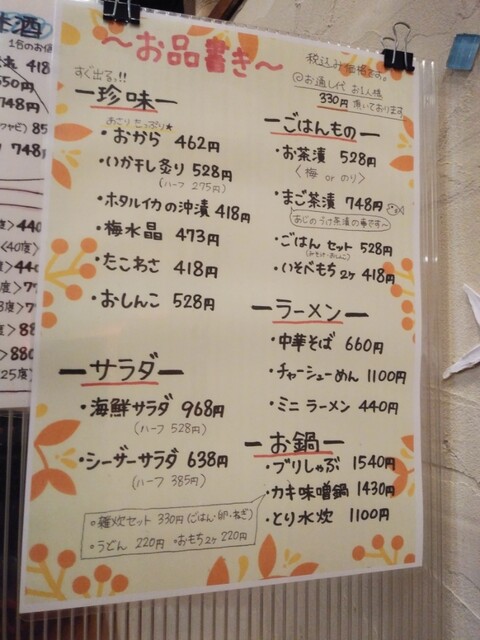 〜お品書き〜
税込み価格です。
@お通し代 お1人様
330円 頂いております
すぐ出る!!
珍味
おさけ たっぷり★
・おから 462円
・いか干し炙り 528円
(ハーフ 275円)
・ホタルイカの沖漬 418円
・梅水晶 473円
・たこわさ 418円
・おしんこ 528円
サラダ
・海鮮サラダ 968円
(ハーフ 528円)
・シーザーサラダ 638円
(ハーフ 385円)
ごはんもの
・お茶漬 528円
〈梅 or のり〉
・まご茶漬 748円
あじのづけ茶漬の事です〜
・ごはん セット 528円
(みそ汁・おしんこ)
・いそべもち 2ヶ 418円
ラーメン
・中華そば 660円
・チャーシューめん 1100円
・ミニ ラーメン 440円
お鍋
・ブリしゃぶ 1540円
・カキ味噌鍋 1430円
・とり水炊 1100円
○雑炊セット 330円(ごはん・卵・ねぎ)
○うどん 220円 ○おもち2ヶ 220円
酒
418
748円
85
748
440
〈40度〉
880
25度〉